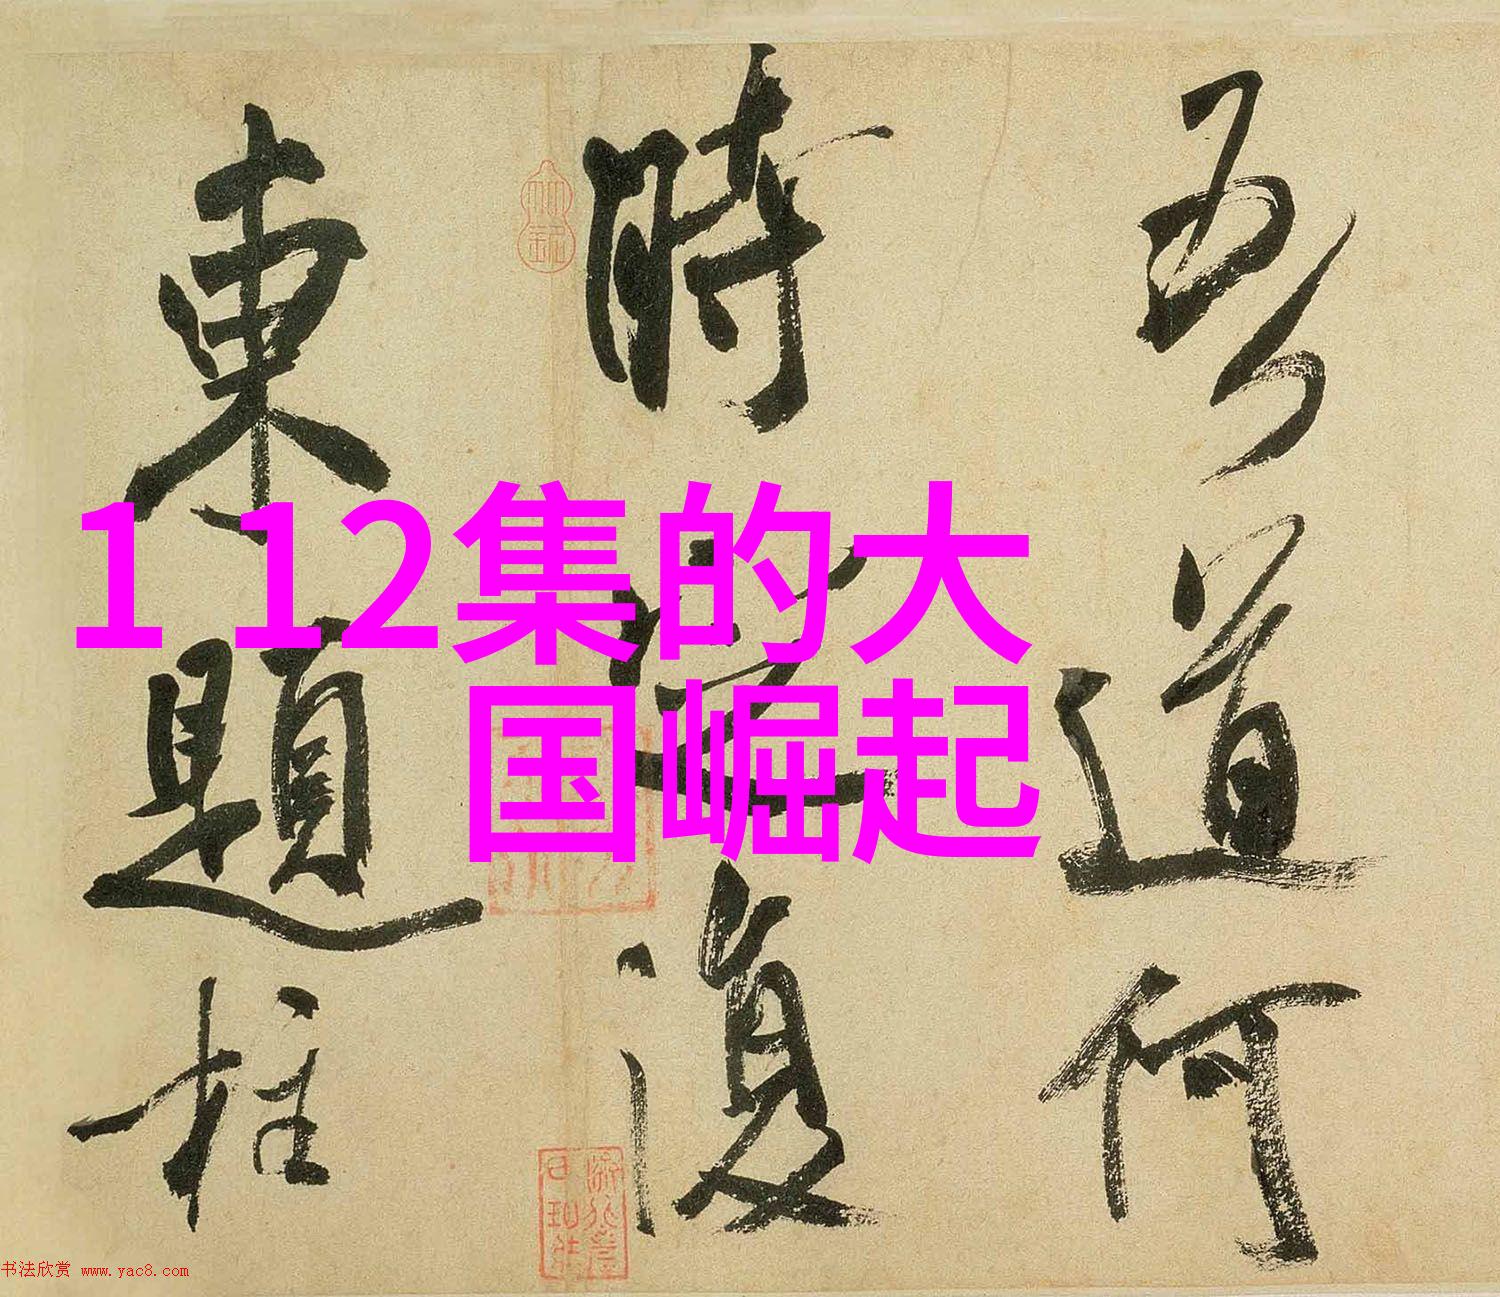 吾道何
時還復
東題柱
1 12集的大
国崛起
书法欣赏 www.yac8.com